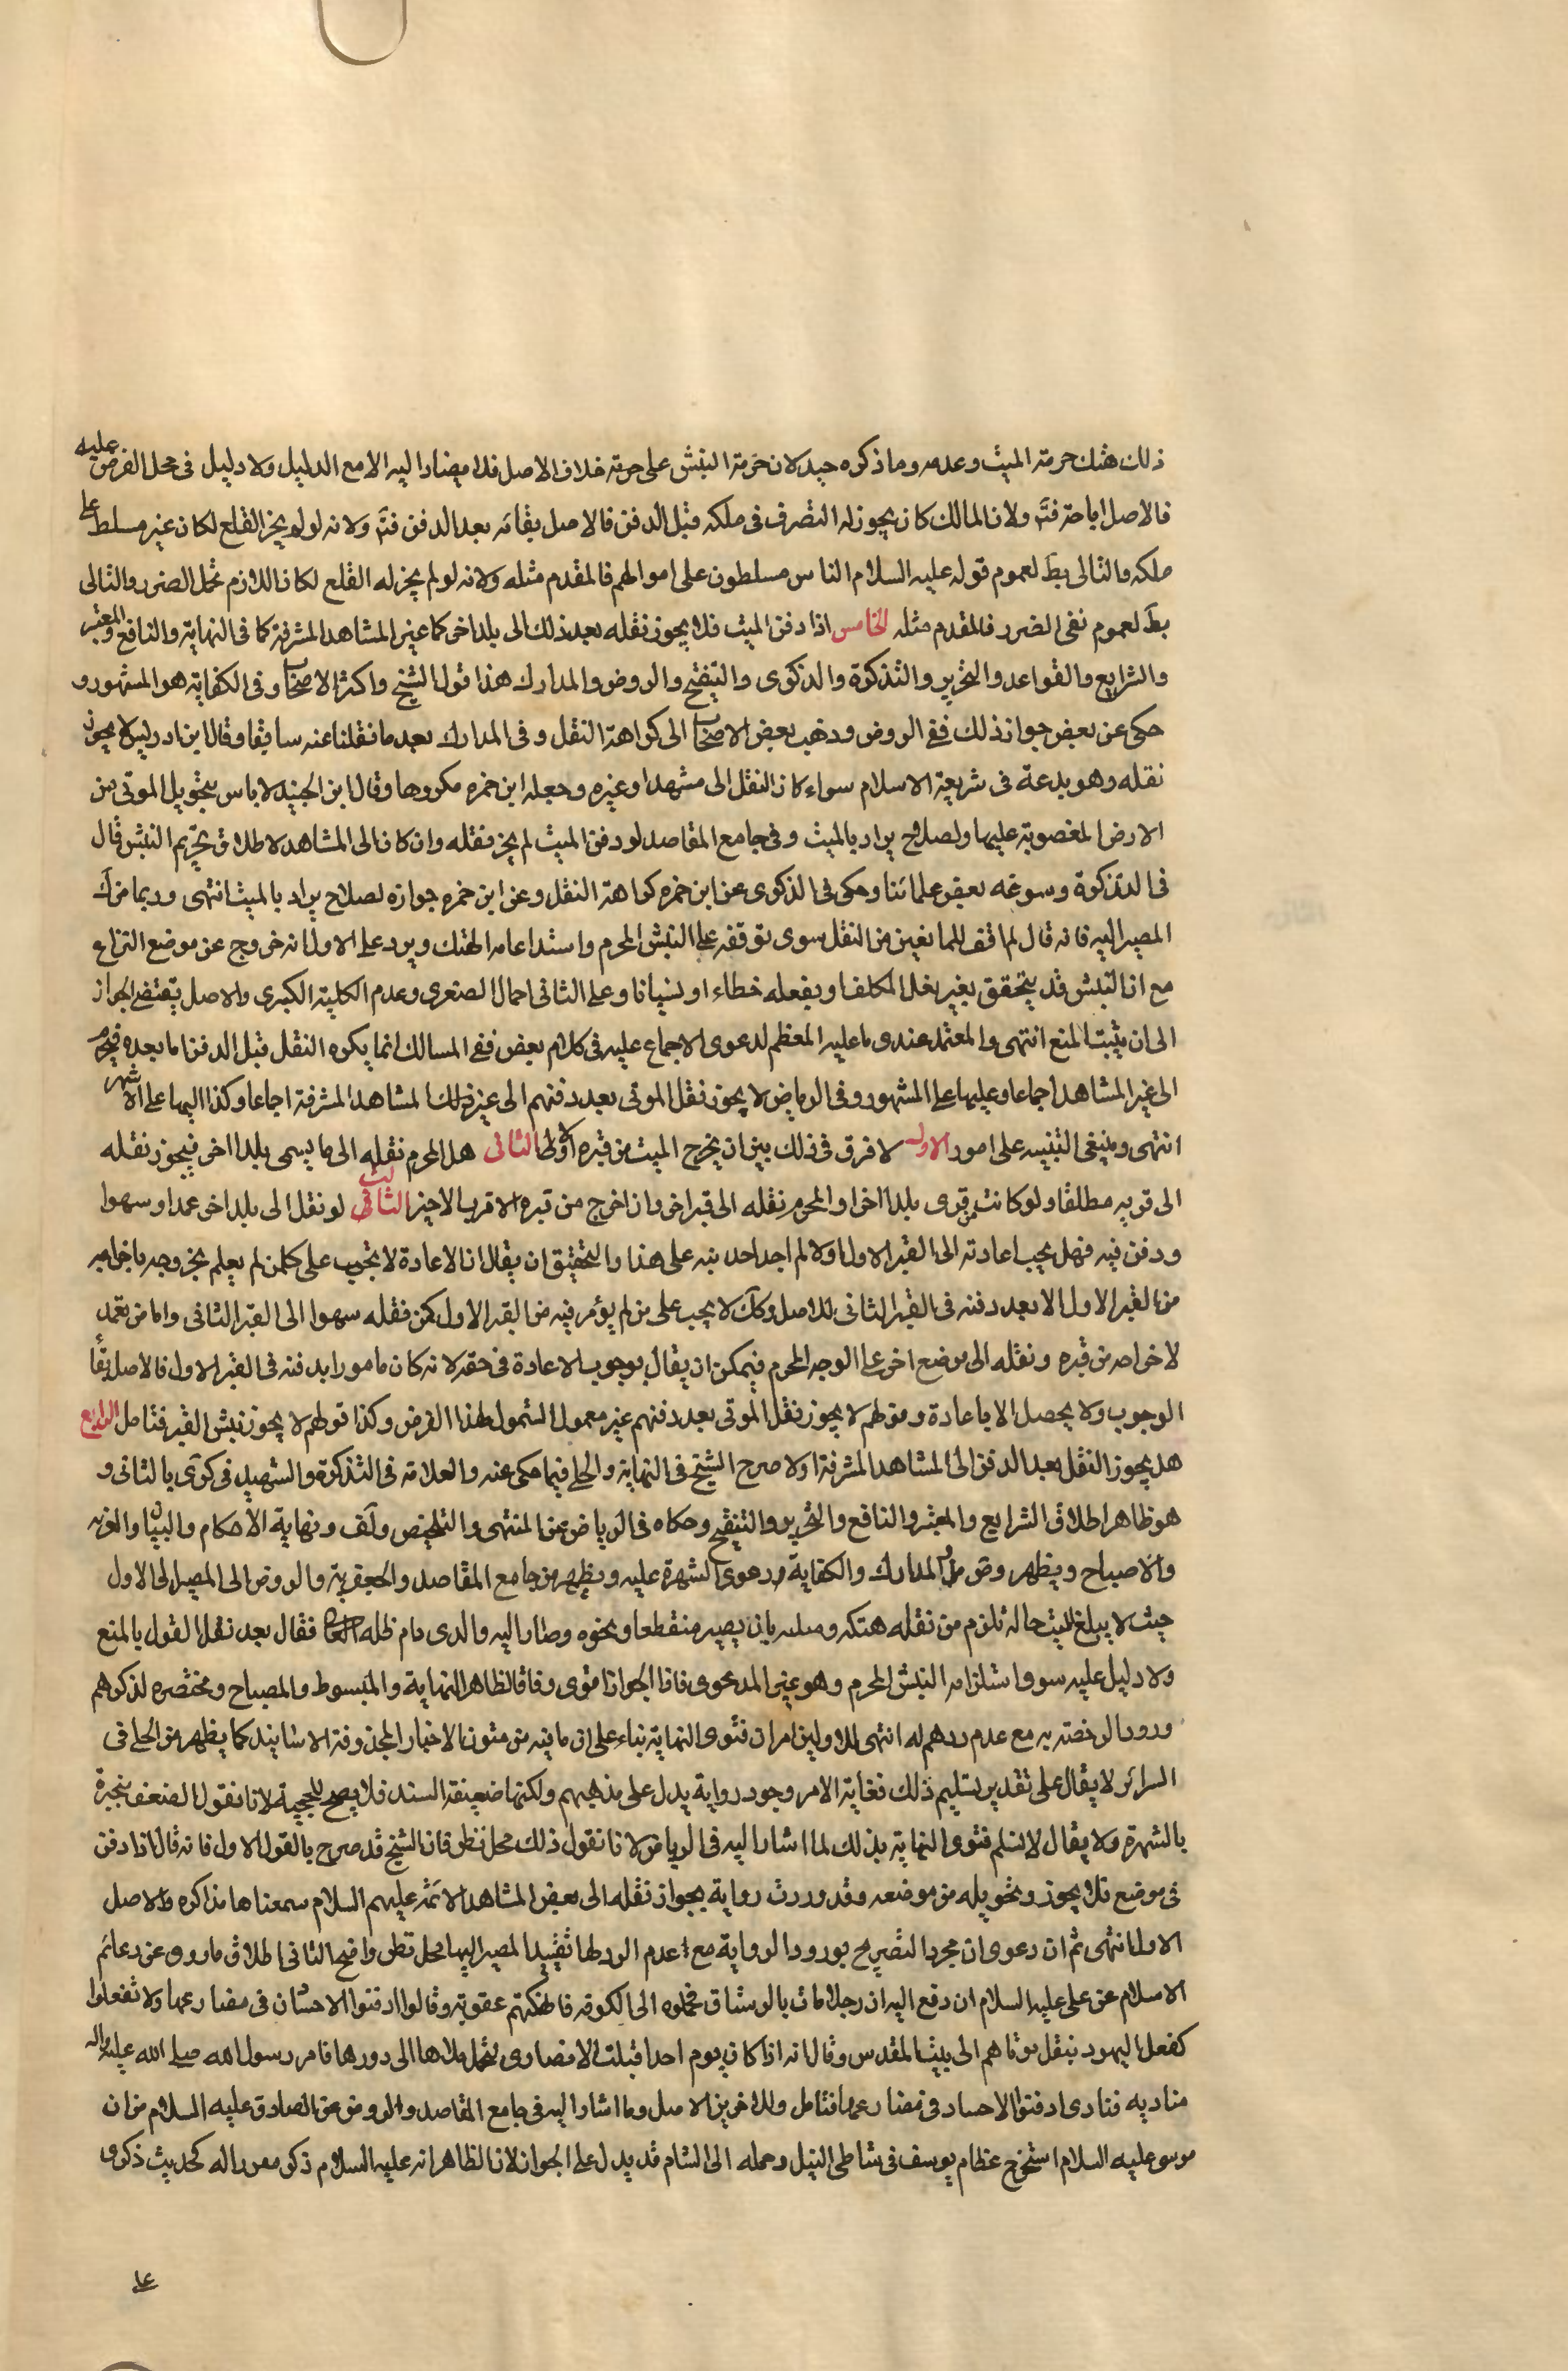 ذلك هتك حرمة الميت وعدمه وما ذكره جيد لان حرمة النبش على حرمة خلاف الاصل فلا يصار اليه الا مع الدليل ولا دليل فى محل الفرض عليه
فالاصل اباحته فتم ولان المالك كان يجوز له التصرف فى ملكه قبل الدفن فالاصل بقائه بعد الدفن فتم ولانه لو لم يجز القلع لكان غير مسلط على
ملكه والتالى بط لعموم قوله عليه السلام الناس مسلطون على اموالهم فالمقدم مثله ولانه لو لم يجز له القلع لكان اللازم تحمل الضرر والتالى
بط لعموم نفى الضرر فالمقدم مثله الخامس اذا دفن الميت فلا يجوز نقله بعد ذلك الى بلد اخر كما عير المشاهد المشرفة كما فى النهاية والنافع والمعتبر
والشرايع والقواعد والتحرير والتذكرة والذكرى والتنقيح والروض والمدارك هذا قول الشيخ واكثر الاصحاب وفى الكفاية هو المشهور و
حكى عن بعض جواز ذلك ففى الروض وذهب بعض الاصحاب الى كراهة النقل وفى المدارك بعد ما نقلنا عنه سابقا وقال ابن ادريس لا يجوز
نقله وهو بدعة فى شريعة الاسلام سواء كان النقل الى مشهد او غيره وجعله ابن حمزه مكروها وقال ابن الجنيد لا باس بتحويل الموتى من
الارض المغصوبة عليها ولصلاح يراد بالميت وفى جامع المقاصد لو دفن الميت لم يجز نقله وان كان الى المشاهد لاطلاق تحريم النبش قال
فى التذكرة وسوغه بعض علمائنا وحكى فى الذكرى عن ابن حمزه كراهة النقل وعن ابن حمزه جوازه لصلاح يراد بالميت انتهى وربما مر ك
المصير اليه فانه قال لم اقف للمانعين من النقل سوى توقفه على النبش المحرم واستدعائه الهتك ويرد على الاول انه خروج عن موضع النزاع
مع ان النبش قد يتحقق بغير فعل المكلف او بفعله خطاء او نسيانا وعلى الثانى احمال الصغرى وعدم الكلية الكبرى والاصل يقتضى الجواز
الى ان يثبت المنع انتهى والمعتمد عندى ما عليه المعظم لدعوى الاجماع عليه فى كلام بعض ففى المسالك انما يكره النقل قبل الدفن اما بعده فيحرم
الى غير المشاهد اجماعا وعليها على المشهور وفى الرياض لا يجوز نقل الموتى بعد دفنهم الى غير ذلك المشاهد المشرفة اجماعا وكذا اليها على الاشهر
انتهى وينبغى التنبيه على امور الاول لا فرق فى ذلك بين ان يخرج الميت من قبره اولا الثانى هل المحرم نقله الى ما يسمى بلدا اخر فيجوز نقله
الى قربه مطلقا ولو كانت من قرى بلد اخر او المحرم نقله الى قبر اخر وان اخرج من قبره الاقرب الاخير الثالث لو نقل الى بلد اخر عمدا او سهوا
ودفن فيه فهل يجب اعادته الى القبر الاول او لا لم اجد احد ينبه على هذا والتحقيق ان يقال ان الاعادة لا تجب على كل من لم يعلم بخروجه باخراجه
من القبر الاول الا بعد دفنه فى القبر الثانى للاصل وكك لا يجب على من لم يؤمر فيه من القبر الاول كمن نقله سهوا الى القبر الثانى واما من تعمد
لاخراجه من قبره ونقله الى موضع اخر على الوجه المحرم فيمكن ان يقال بوجوب الاعادة فى حقه لانه كان مامورا بدفنه فى القبر الاول فالاصل بقاء
الوجوب ولا يحصل الا باعادة وقولهم لا يجوز نقل الموتى بعد دفنهم غير معمول الشمول لهذا الفرض وكذا قولهم لا يجوز نبش القبر فتامل الرابع
هل يجوز النقل بعد الدفن الى المشاهد المشرفة او لا صرح الشيخ فى النهاية والحلى فيما حكى عنه والعلامة فى التذكرة والشهيد فى كرى بالثانى و
هو ظاهر اطلاق الشرايع والمعتبر والنافع والتحرير والتنقيح وحكاه فى الرياض عن المنتهى والتلخيص ولف ونهاية الاحكام والبيان والعزيه
والاصباح ويظهر وض من المدارك والكفاية دعوى الشهرة عليه ويظهر من جامع المقاصد والجعفرية والروض الى المصير الى الاول
حيث لا يبلغ الميت حالة تلزم من نقله هتكه ومثله بان يصير منقطعا ونحوه وصار اليه والدى دام ظله العالى فقال بعد نقل القول بالمنع
ولا دليل عليه سوى استلزامه النبش المحرم وهو غير المدعوى فاذا الجواز اقوى وفاقا لظاهر النهاية والمبسوط والمصباح ومختصره لذكرهم
ورود الرخصة به مع عدم ردهم له انتهى للاولين امران فتوى النهاية بناء على ان ما فيه من متون الاخبار المحذوفة الاسانيد كما يظهر من الحلى فى
السرائر لا يقال على تقدير تسليم ذلك فغاية الامر وجود رواية يدل على مذهبهم ولكنها ضعيفة السند فلا يصح للحجية لانا نقول الضعف منجبرة
بالشهرة ولا يقال لا نسلم فتوى النهاية بذلك لما اشار اليه فى الرياض لانا نقول ذلك محل نظر فان الشيخ قد صرح بالقول الاول فانه قال اذا دفن
فى موضع فلا يجوز وتحويله من موضعه وقد وردت رواية بجواز نقله الى بعض المشاهد الائمة عليهم السلام سمعناها مذاكره والاصل
الاول انتهى ثم ان دعوى ان مجرد التصريح بورود الرواية مع عدم الرد لها تفيد المصير اليها محل نظر واضح الثانى اطلاق ما روى عن دعائم
الاسلام عن على عليه السلام ان دفع اليه ان رجلا مات بالرستاق فحملوه الى الكوفه فانهكتهم عقوبة وقالوا ادفنوا الاحسان فى مصارعها ولا تفعلوا
كفعل اليهود بنقل موتاهم الى بيت المقدس وقال انه اذا كان يوم احد اقبلت الانصارى لتحمل قتلاها الى دورها فامر رسول الله صلى الله عليه واله
مناديه فنادى ادفنوا الاجساد فى مصارعها فتامل وللاخرين الاصل وما اشار اليه فى جامع المقاصد والروض عن الصادق عليه السلام من ان
موسى عليه السلام استخرج عظام يوسف فى شاطى النيل وحمله الى الشام قد يدل على الجواز لان الظاهر انه عليه السلام ذكر مقررا له كحديث ذكرى
على